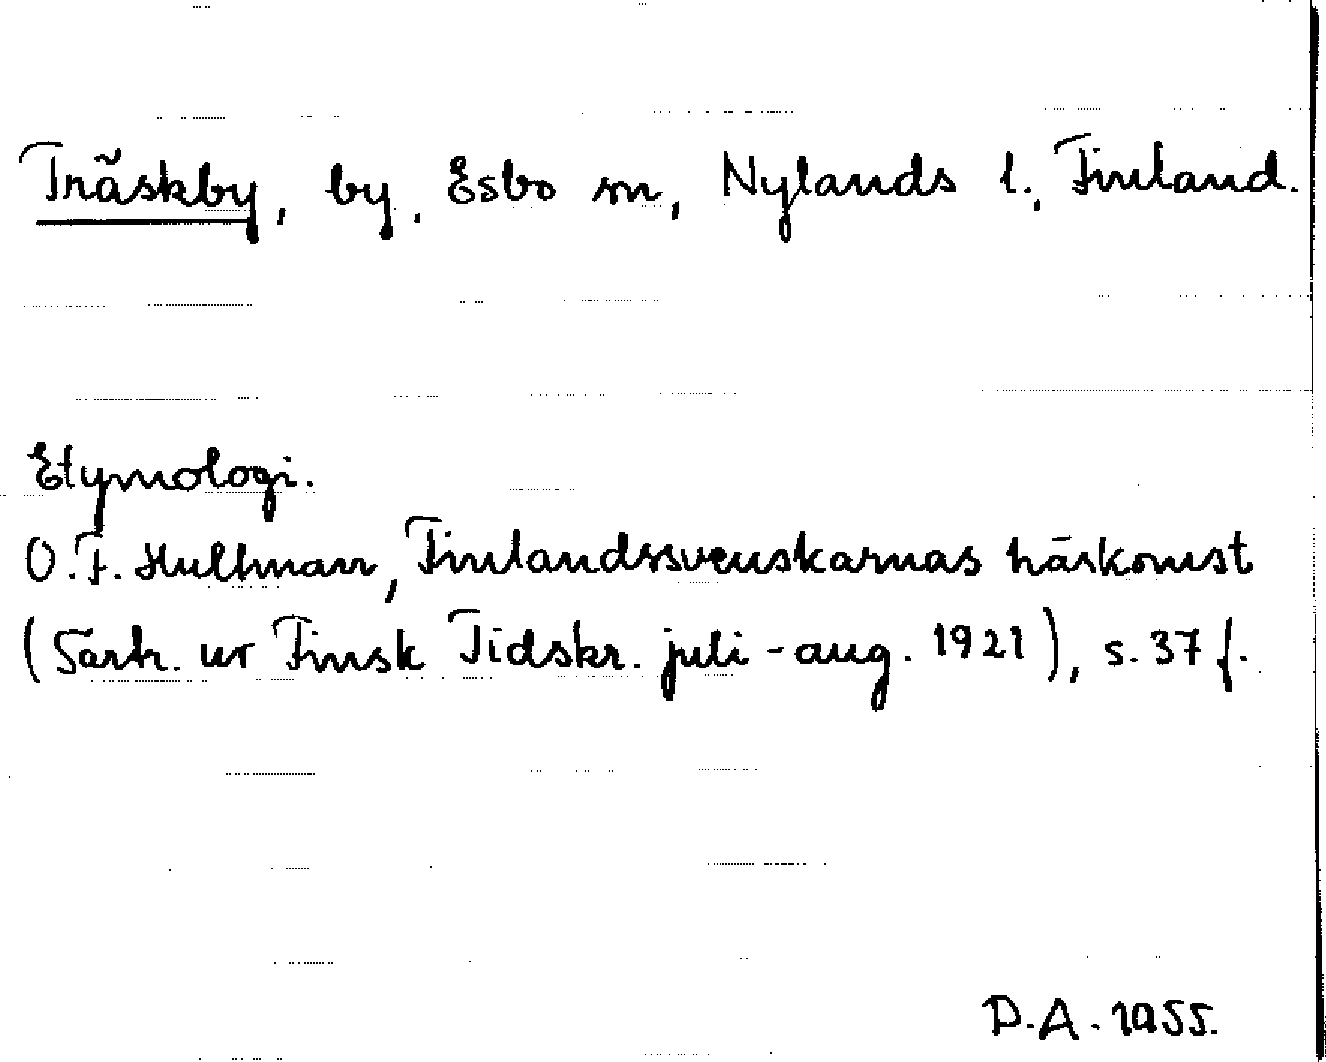 Träskby, by, Esbo sn, Nylands l., Finland.
Etymologi.
O.F. Hultman, Finlandssvenskarnas härkomst
(Särtr. ur Finsk Tidskr. juli-aug. 1921), s. 37 f.
D.A. 1955.